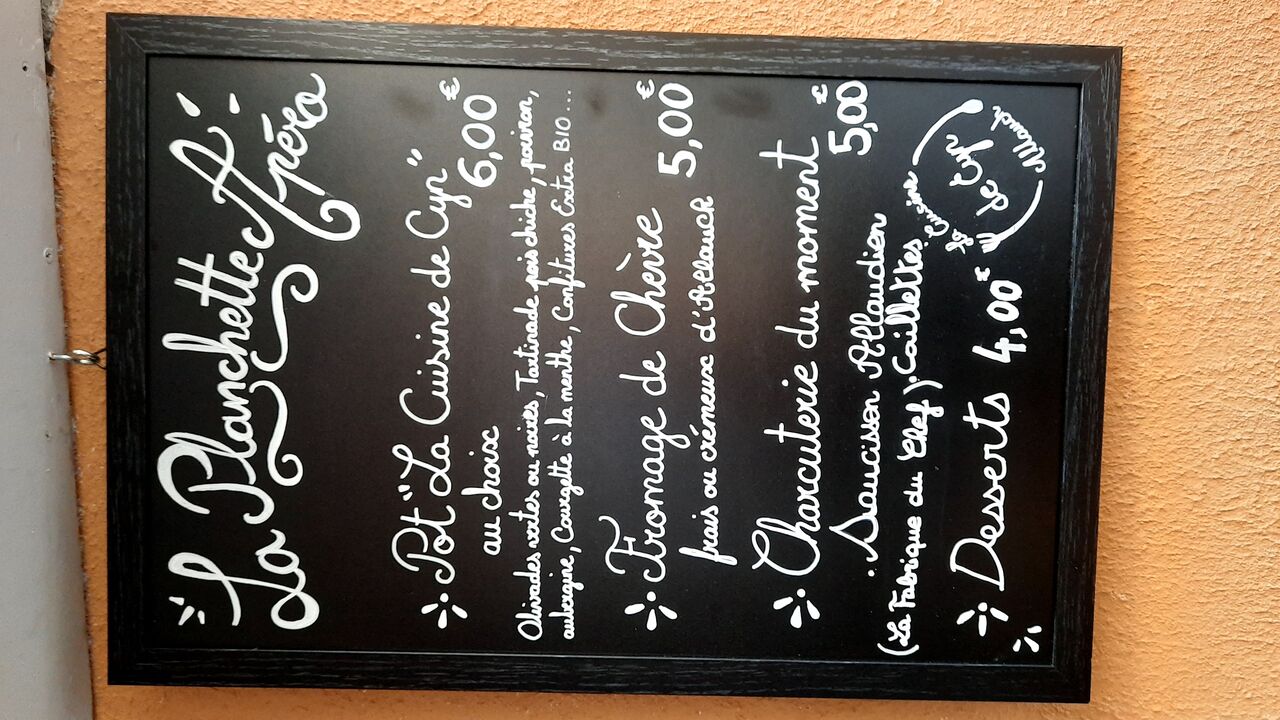 La Planchette Apéro
Pot "La Cuisine de Cyn"
6,00 €
au choix
Olivades vertes ou noires, Tartinade pois chiche, poivron,
aubergine, Courgette à la menthe, Confitures Extra BIO...
Fromage de Chèvre
frais ou crémeux d'Allauch 5,00 €
Charcuterie du moment
5,00 €
. Saucisson Allaudien
(La Fabrique du Chef). Caillettes.
Desserts 4,00 €
La Cuisine
de Cyn
Allauch